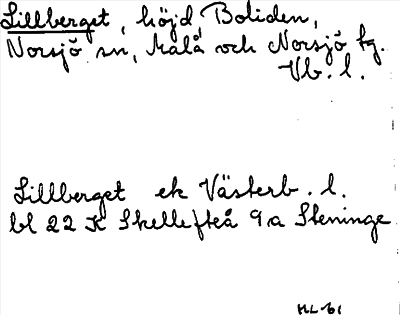 Lillberget, höjd, Boliden,
Norsjö sn, Malå och Norsjö tg.
Vb. l.
Lillberget ek Västerb. l.
bl 22 K Skellefteå 9a Steninge
HL-61